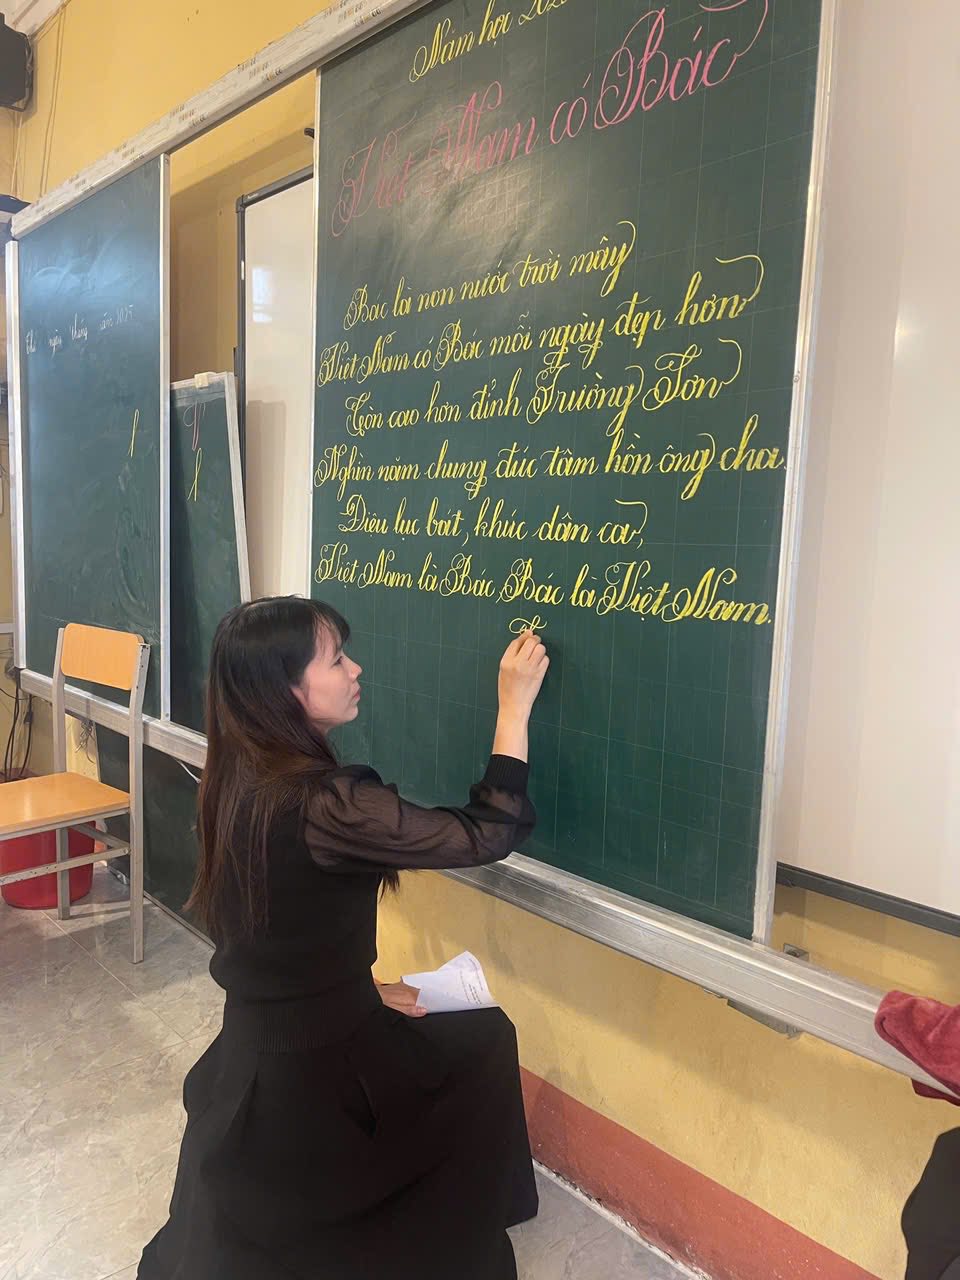 Năm học 202
Việt Nam có Bác
Bác là non nước trời mây
Việt Nam có Bác mỗi ngày đẹp hơn
Còn cao hơn đỉnh Trường Sơn
Nghìn năm chung đúc tâm hồn ông cha.
Điệu lục bát, khúc dân ca,
Việt Nam là Bác, Bác là Việt Nam.
Thứ ngày tháng năm 2025